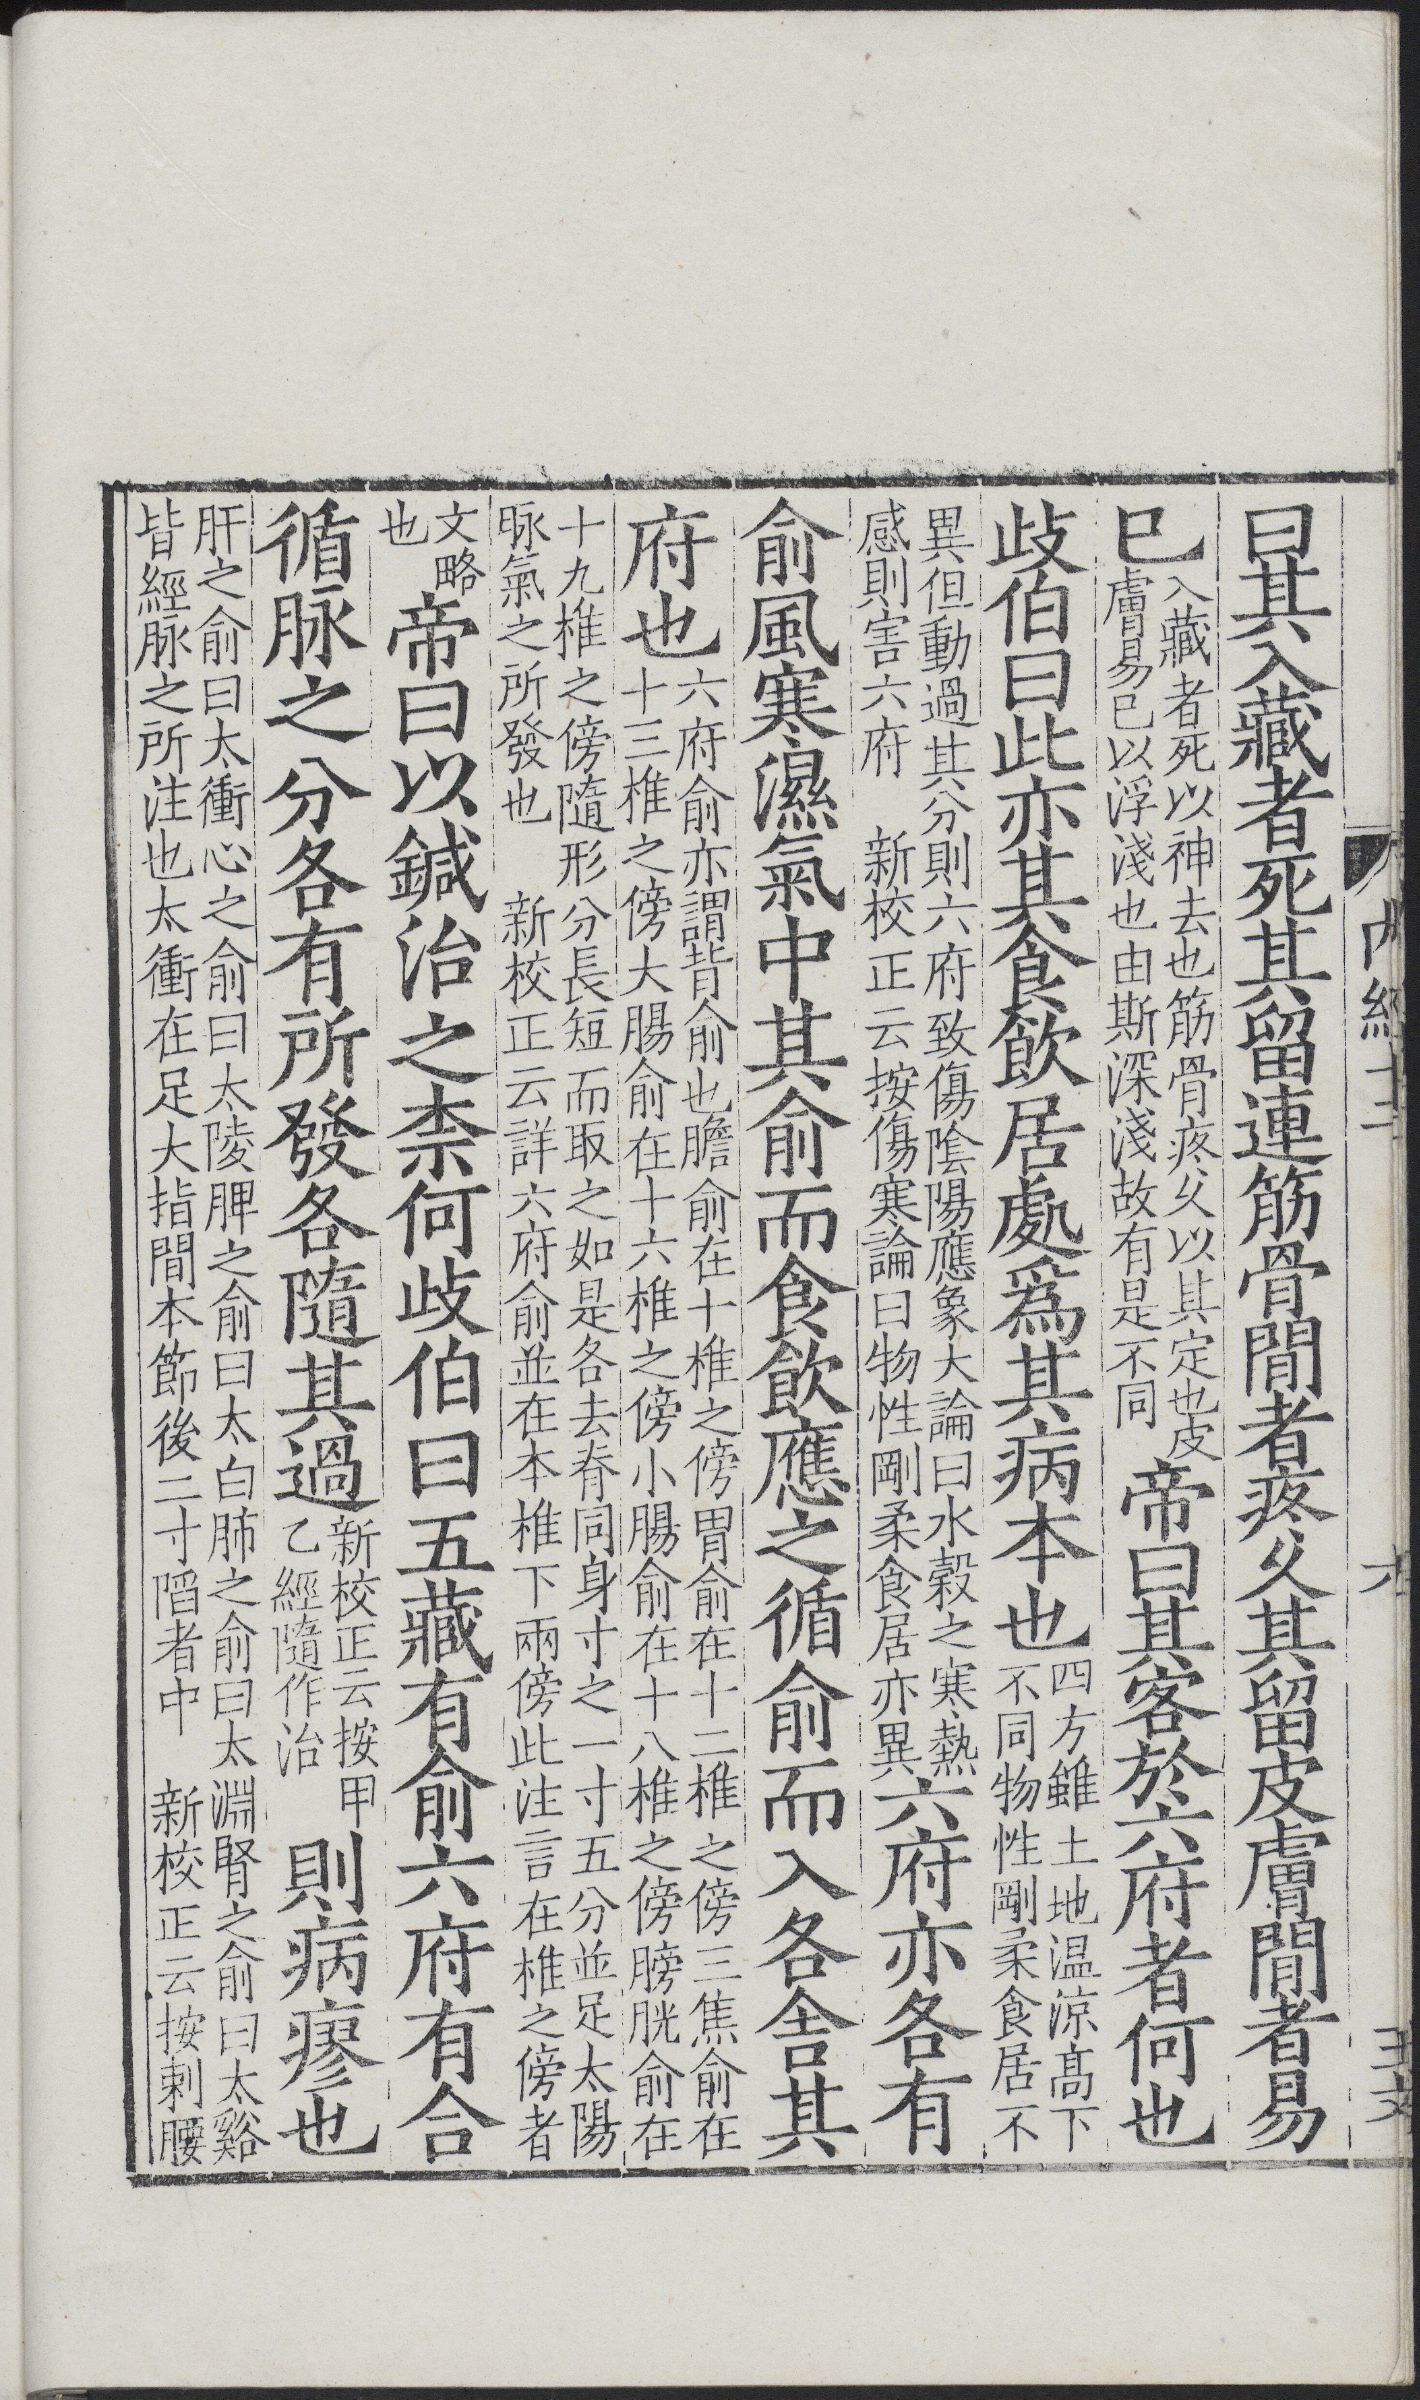 曰其入藏者死其留連筋骨閒者疼久其留皮膚閒者易
已入藏者死以神去也筋骨疼久以其定也皮
膚易已以浮淺也由斯深淺故有是不同帝曰其客於六府者何也
歧伯曰此亦其食飲居處爲其病本也四方雖土地温涼髙下
不同物性剛柔食居不
異但動過其分則六府致傷隂陽應象大論曰水穀之寒熱
感則害六府 新校正云按傷寒論曰物性剛柔食居亦異六府亦各有
俞風寒濕氣中其俞而食飲應之循俞而入各舍其
府也六府俞亦謂背俞也膽俞在十椎之傍胃俞在十二椎之傍三焦俞在
十三椎之傍大腸俞在十六椎之傍小腸俞在十八椎之傍膀胱俞在
十九椎之傍隨形分長短而取之如是各去脊同身寸之一寸五分並足太陽
脉氣之所發也 新校正云詳六府俞並在本椎下兩傍此注言在椎之傍者
文略
也帝曰以鍼治之柰何歧伯曰五藏有俞六府有合
循脉之分各有所發各隨其過新校正云按甲
乙經隨作治則病瘳也
肝之俞曰太衝心之俞曰太陵脾之俞曰太白肺之俞曰太淵腎之俞曰太谿
皆經脉之所注也太衝在足大指間本節後二寸陷者中 新校正云按刺腰
内經十二